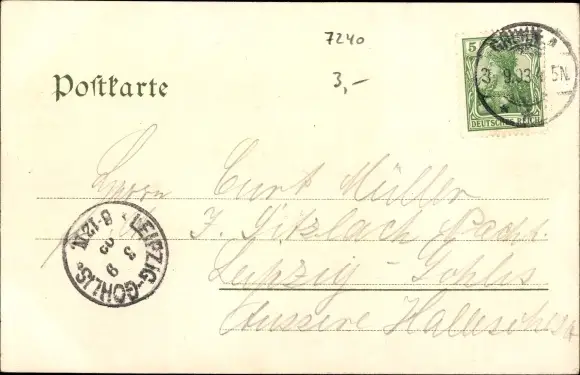 7240
3,–
Postkarte
5
DEUTSCHES REICH
3. 9.03. 5N.
Herrn Curt Müller
J. Sitzlach Nachf.
Leipzig-Gohlis
Äussere Hallesche
LEIPZIG-GOHLIS
3 9 03